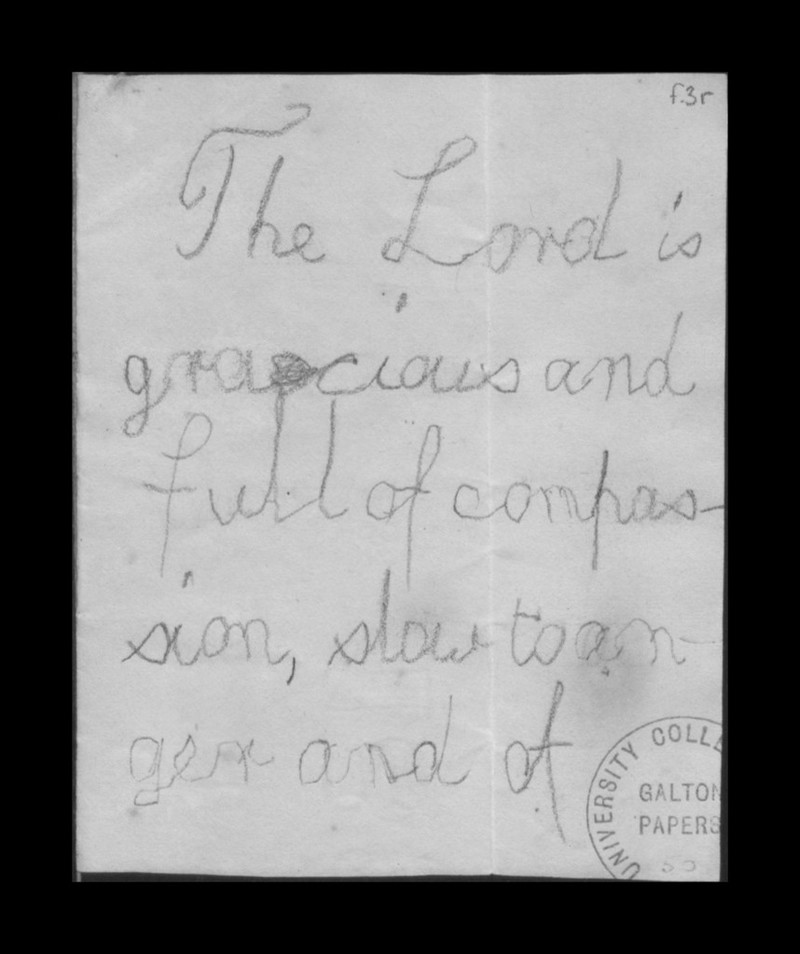 f.3r
The Lord is
gracious and
full of compas-
sion, slow to an-
ger and of
UNIVERSITY COLLE
GALTON
PAPERS